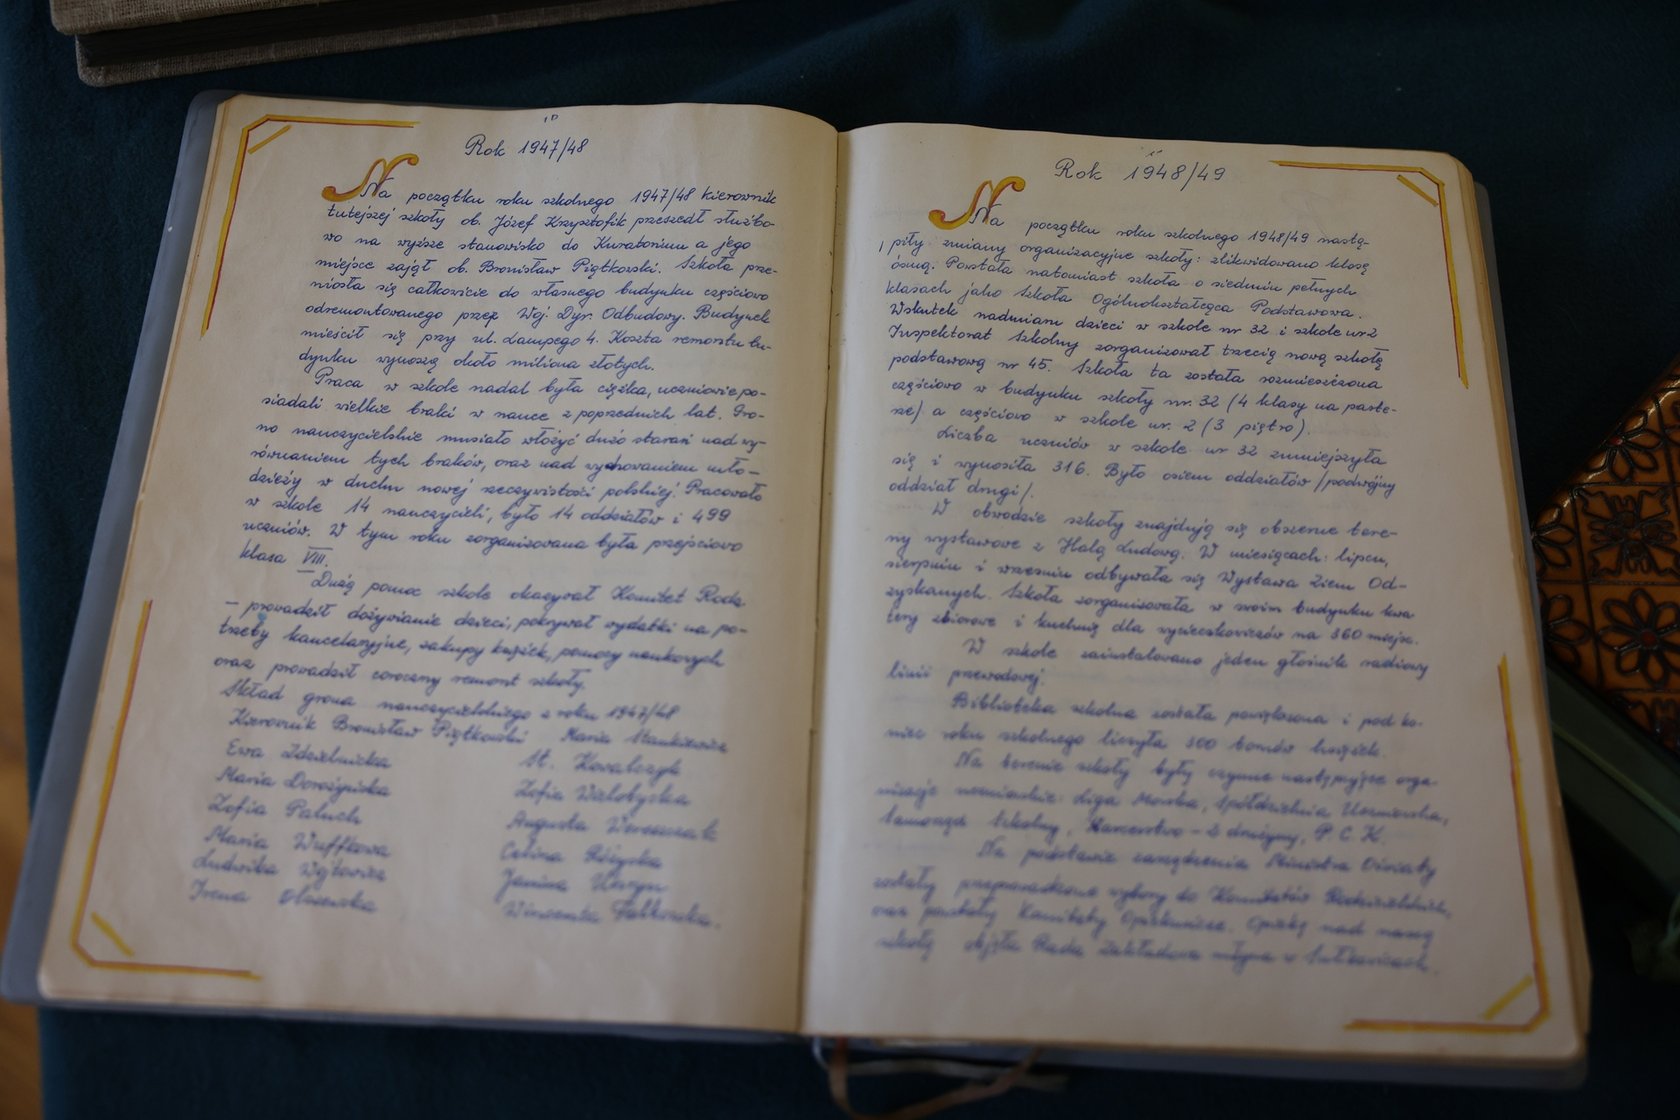 10
Rok 1947/48
Na początku roku szkolnego 1947/48 kierownik
tutejszej szkoły ob. Józef Krzysztofik przeszedł służbo-
wo na wyższe stanowisko do Kuratorium a jego
miejsce zajął ob. Bronisław Piątkowski. Szkoła prze-
niosła się całkowicie do własnego budynku częściowo
odremontowanego przez Woj. Dyr. Odbudowy. Budynek
mieścił się przy ul. Lampego 4. Koszta remontu bu-
dynku wynoszą około miliona złotych.
Praca w szkole nadal była ciężka, uczniowie po-
siadali wielkie braki w nauce z poprzednich lat. Gro-
no nauczycielskie musiało włożyć dużo starań nad wy-
równaniem tych braków, oraz nad wychowaniem mło-
dzieży w duchu nowej rzeczywistości polskiej. Pracowało
w szkole 14 nauczycieli, było 14 oddziałów i 499
uczniów. W tym roku zorganizowana była przejściowo
klasa VIII.
Dużą pomoc szkole okazywał Komitet Rodz.
– prowadził dożywianie dzieci, pokrywał wydatki na po-
trzeby kancelaryjne, zakupy książek, pomocy naukowych
oraz prowadził coroczny remont szkoły.
Skład grona nauczycielskiego z roku 1947/48
Kierownik Bronisław Piątkowski Maria Stankiewicz
Ewa Zdzielnicka St. Kowalczyk
Maria Dorożyńska Zofia
Zofia Paluch Augusta
Maria Wuffkowa Celina Różycka
Ludwika Wójtowicz Janina
Irena Olszewska Wincentka Falkowska.
11
Rok 1948/49
Na początku roku szkolnego 1948/49 nastą-
piły zmiany organizacyjne szkoły: zlikwidowano klasę
ósmą. Powstała natomiast szkoła o siedmiu pełnych
klasach jako Szkoła Ogólnokształcąca Podstawowa.
Wskutek nadmiaru dzieci w szkole nr 32 i szkole nr 2
Inspektorat Szkolny zorganizował trzecią nową szkołę
podstawową nr 45. Szkoła ta została rozmieszczona
częściowo w budynku szkoły nr 32 (4 klasy na parte-
rze) a częściowo w szkole nr. 2 (3 piętro).
Liczba uczniów w szkole nr 32 zmniejszyła
się i wynosiła 316. Było osiem oddziałów /podwójny
oddział drugi/.
W obwodzie szkoły znajdują się obszerne tere-
ny wystawowe z Halą Ludową. W miesiącach: lipcu,
sierpniu i wrześniu odbywała się Wystawa Ziem Od-
zyskanych. Szkoła zorganizowała w swoim budynku kwa
tery zbiorowe i kuchnię dla wycieczkowiczów na 360 miejsc.
W szkole zainstalowano jeden głośnik radiowy
linii przewodowej.
Biblioteka szkolna została powiększona i pod ko-
niec roku szkolnego liczyła 300 tomów książek.
Na terenie szkoły były czynne następujące orga-
nizacje uczniowskie: Liga Morska, Spółdzielnia Uczniowska,
Samorząd Szkolny, Harcerstwo – 2 drużyny, P. C. K.
Na podstawie zarządzenia Ministra Oświaty
zostały przeprowadzone wybory do Komitetów Rodzicielskich,
oraz powstały Komitety Opiekuńcze. Opiekę nad naszą
szkołą objęła Rada Zakładowa młyna w Sułkowicach.